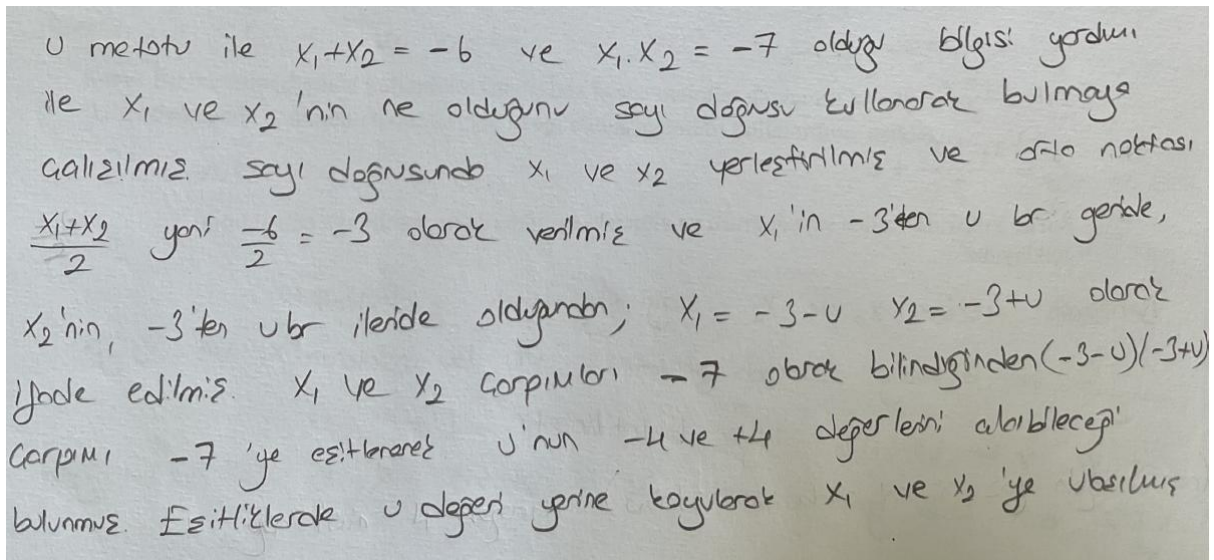 U metotu ile x₁+x₂ = -6 ve x₁.x₂ = -7 olduğu bilgisi yardımı
ile x₁ ve x₂'nin ne olduğunu sayı doğrusu kullanarak bulmaya
çalışılmış. Sayı doğrusunda x₁ ve x₂ yerleştirilmiş ve orta noktası
\frac{x₁+x₂}{2} yani \frac{-6}{2} = -3 olarak verilmiş ve x₁'in -3'ten u br geride,
x₂'nin, -3'ten u br ileride olduğundan; x₁ = -3-u x₂ = -3+u olarak
ifade edilmiş. x₁ ve x₂ çarpımları -7 olarak bilindiğinden (-3-u)(-3+u)
çarpımı -7'ye eşitlenerek u'nun -4 ve +4 değerlerini alabileceği
bulunmuş. Eşitliklerde u değeri yerine koyularak x₁ ve x₂'ye ulaşılmış